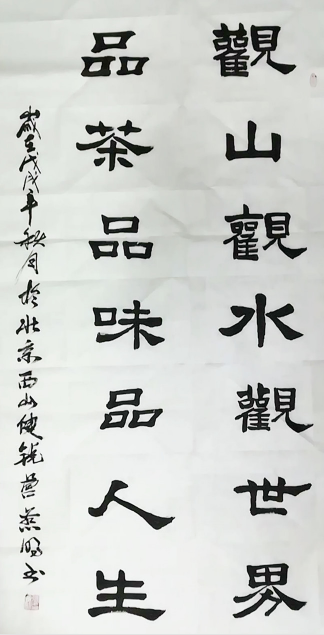 觀山觀水觀世界
品茶品味品人生
歲在戊戌年秋月於北京西山健銳營燕明書